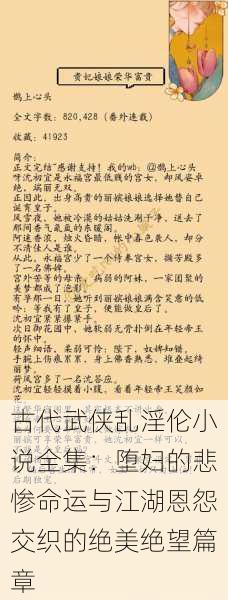 贵妃娘娘荣华富贵
鹊上心头
全文字数：820,428（番外连载）
收藏：41923
简介：
正文完结~感谢支持！我的wb：@鹊上心头
沈初宜是永福宫最低贱的宫女，却风姿卓
绝，端丽无双。
正因此，出身高贵的丽嫔娘娘选择她替自己
诞育皇子。
风雪夜，她被冷漠的姑姑洗涮干净，送去了
那间香气氤氲的东暖阁。
阿迷香浓，烛火昏暗，帐中春色袭人，却分
不清佳人是谁。
从此，永福宫少了一个侍奉宫女，摘芳殿多
了一名佛婢。
宫外苦等的母亲，病弱的阿妹，一家团聚的
美梦都成了泡影。
有孕那一日，她听到丽嫔娘娘满含笑意的低
吟：等我有了皇子，便能做皇后了。
沈初宜紧紧攥紧手。
次日御花园中，她软弱无骨扑倒在年轻帝王
的怀中。
轻声细语，柔弱可怜：陛下，奴婢知错。
手腕上伤痕累累，身上佛香熟悉，堆叠起绮
丽梦。
荷风宫多了一名沈答应。
沈初宜轻轻摸着小腹，看着年轻帝王笑颜如
花。
古代武侠乱淫伦小
说全集：堕妇的悲
惨命运与江湖恩怨
交织的绝美绝望篇
章